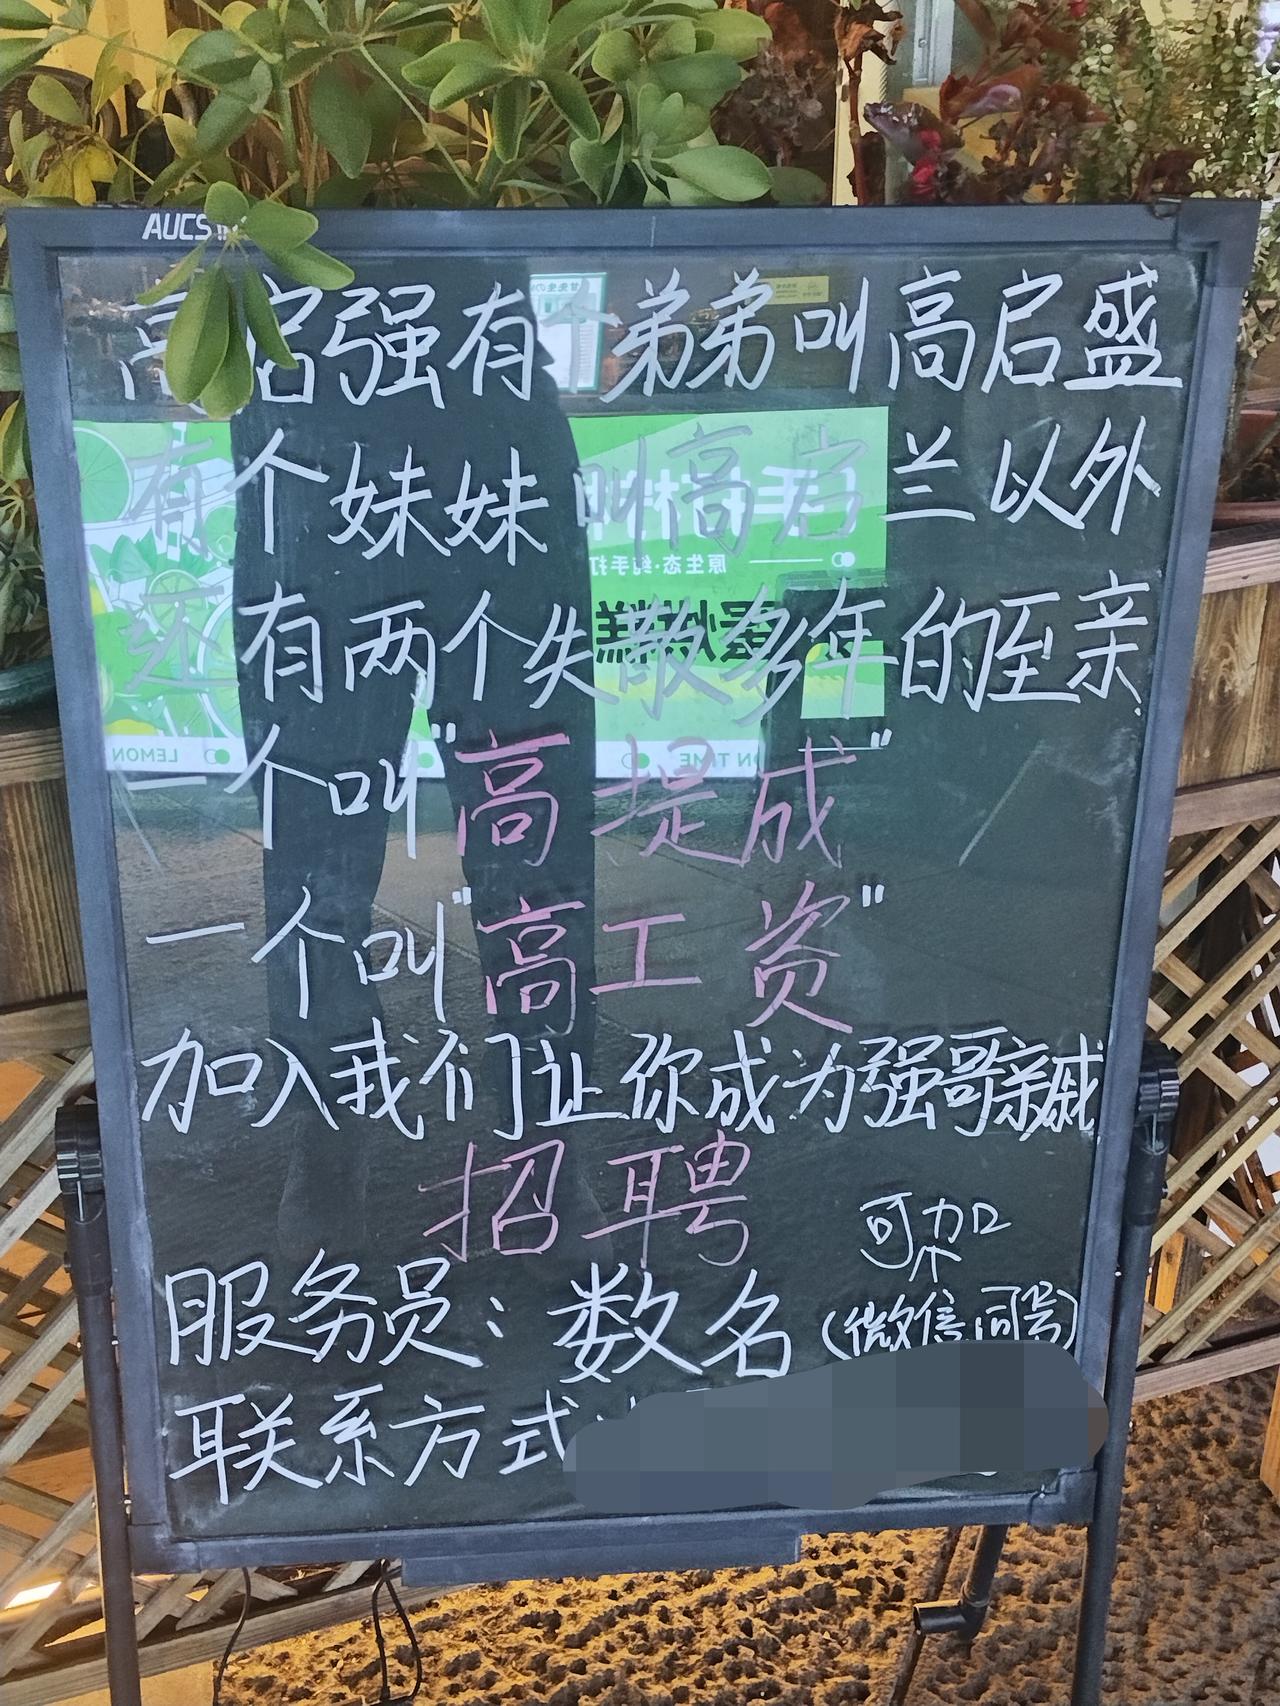 高启强有个弟弟叫高启盛
有个妹妹叫高启兰以外
还有两个失散多年的至亲
一个叫"高提成"
一个叫"高工资"
加入我们让你成为强哥亲戚
招聘
可加
服务员：数名（微信同号）
联系方式：
原生态·纯手打
LEMON
ON TIME